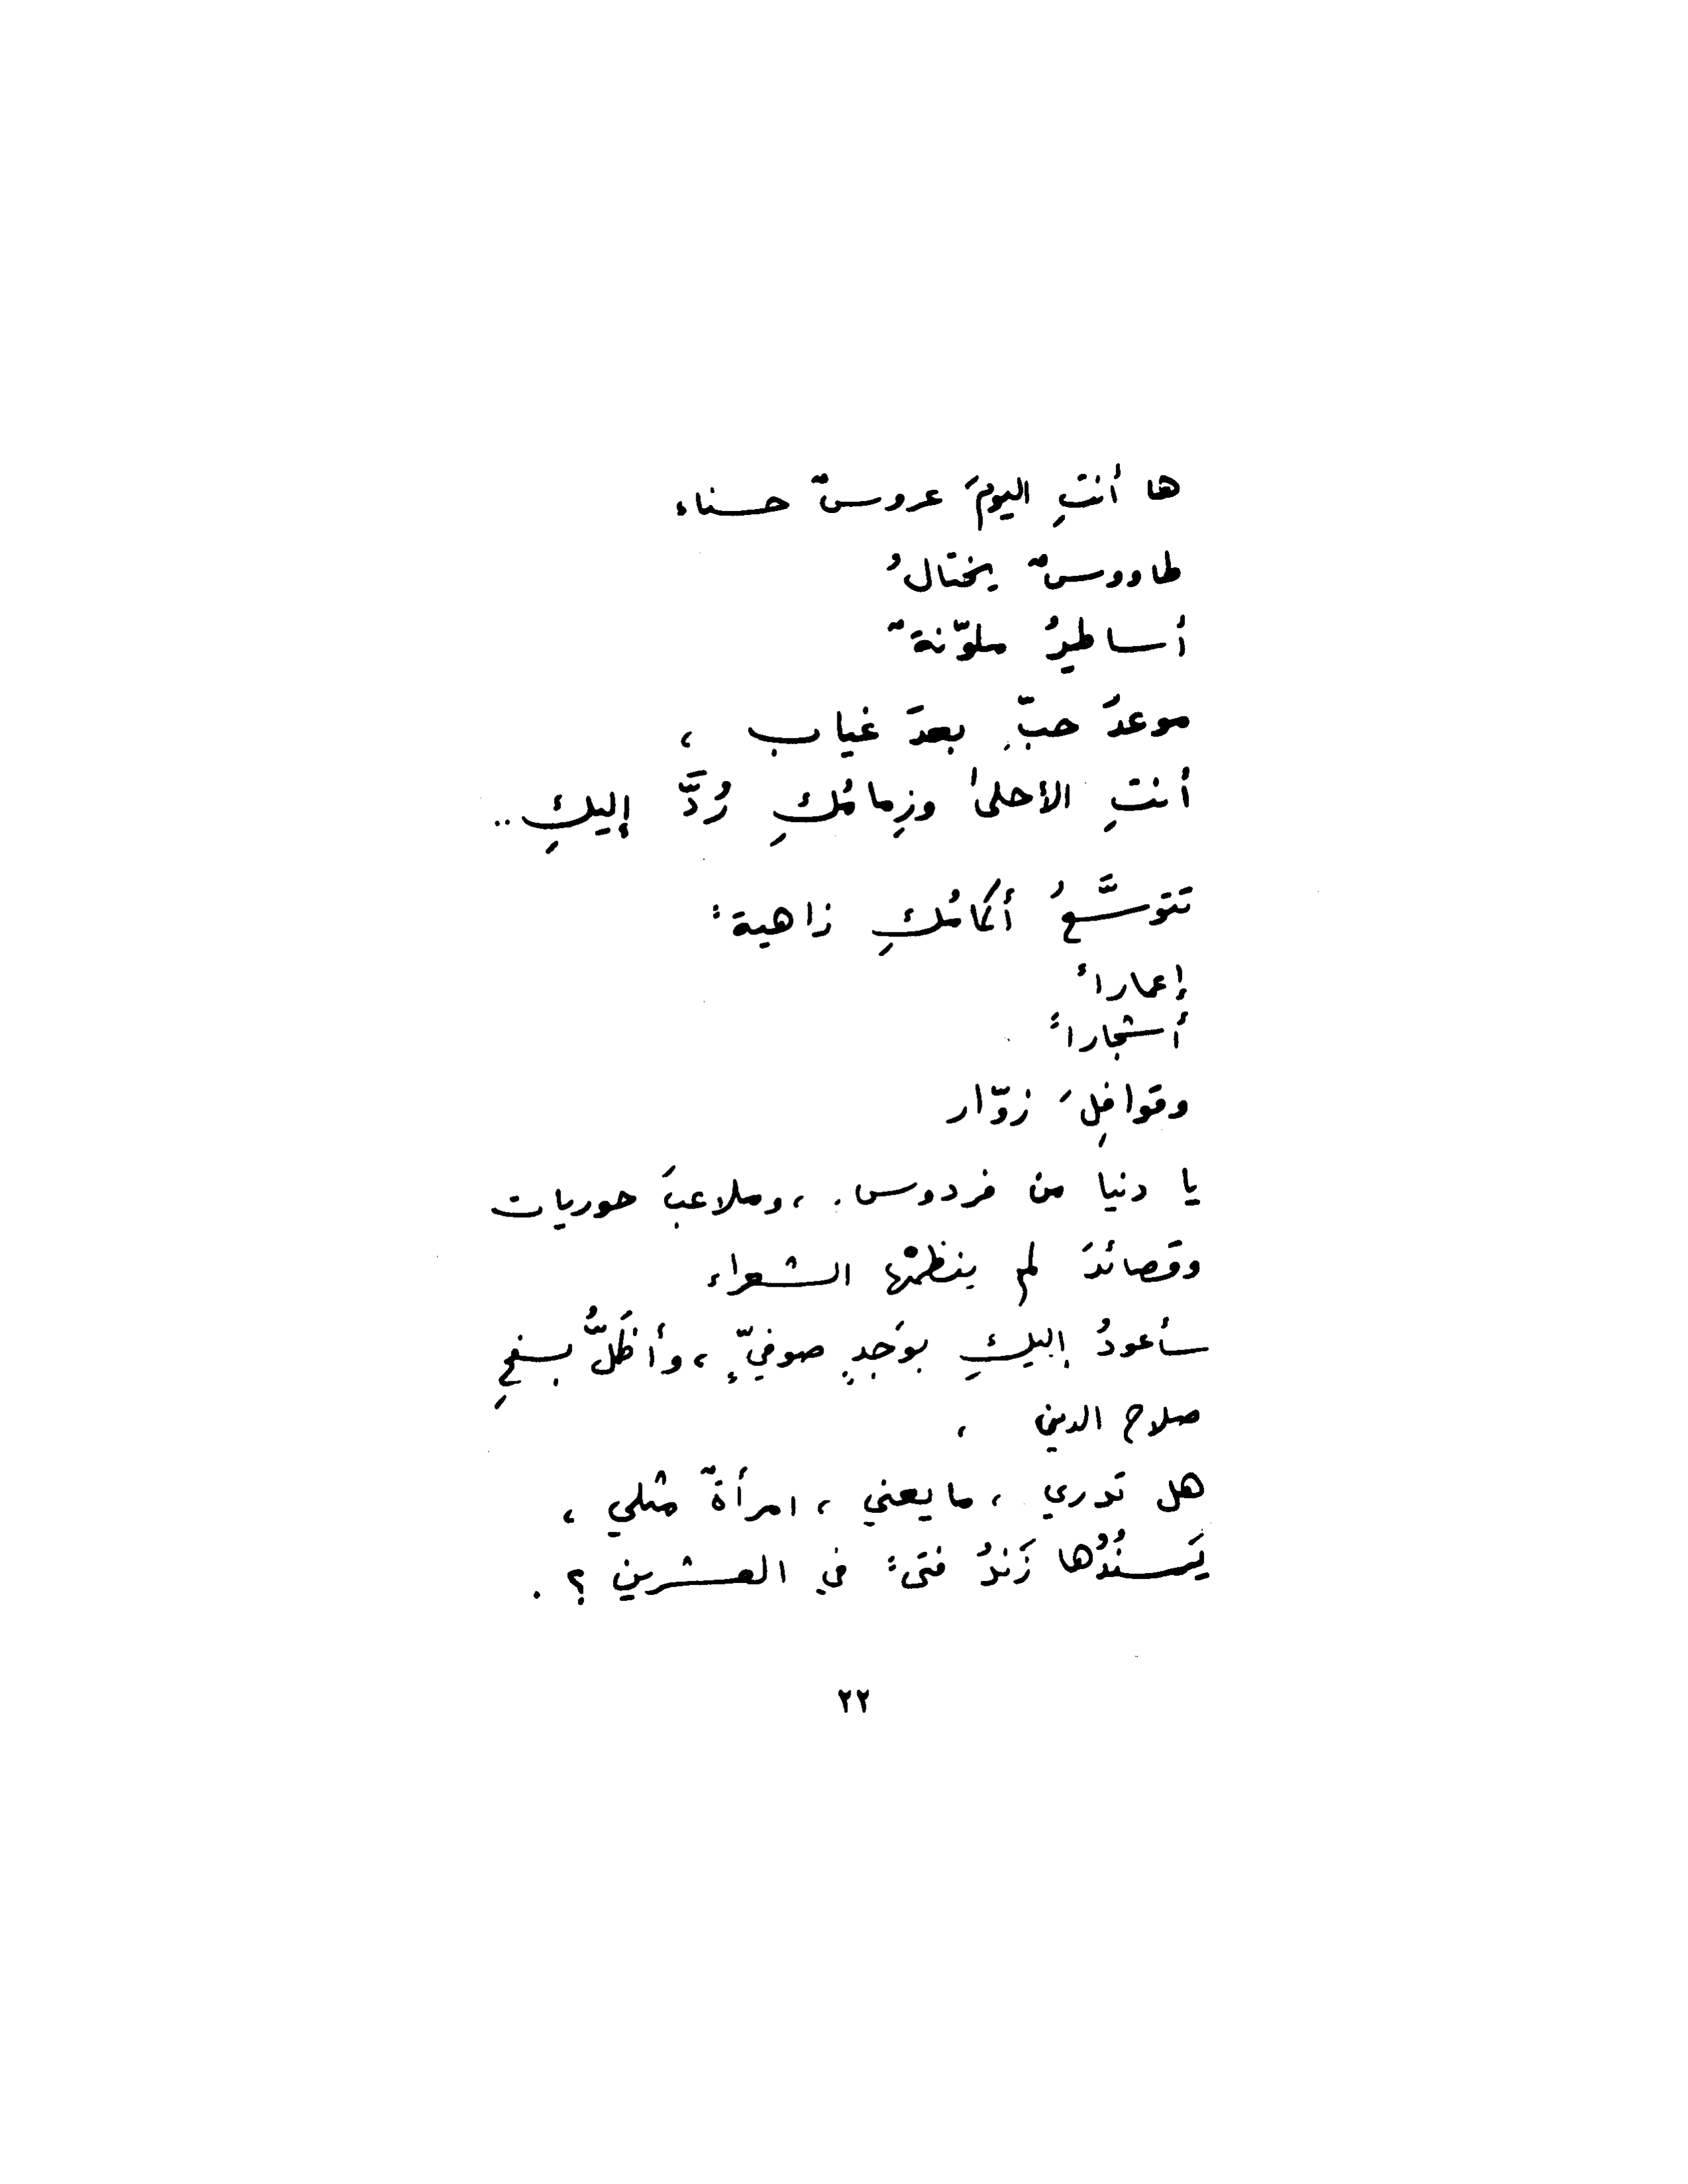 ها أنتِ اليومَ عروسٌ حسناء
طاووسٌ يختالُ
أساطيرُ ملوّنةٌ
موعدُ حبٍّ بعدَ غياب ،
أنتِ الأحلىٰ وزِمامُكِ رُدَّ إليكِ ..
تتوسَّعُ أكمامُكِ زاهيةً :
إعماراً
أشجاراً
وقوافِلَ زوّار
يا دنيا من فردوس . ، وملاعبَ حوريات
وقصائدَ لم ينظمْها الشعراء
سأعودُ إليكِ بوَجدٍ صوفيٍّ ، وأظَلُّ بسفحِ
صلاح الدين ،
هل تدري ، ما يعني ، امرأةٌ مثلي ،
يَسنُدُها زَندُ فتىً في العشرين ؟ .
٢٢